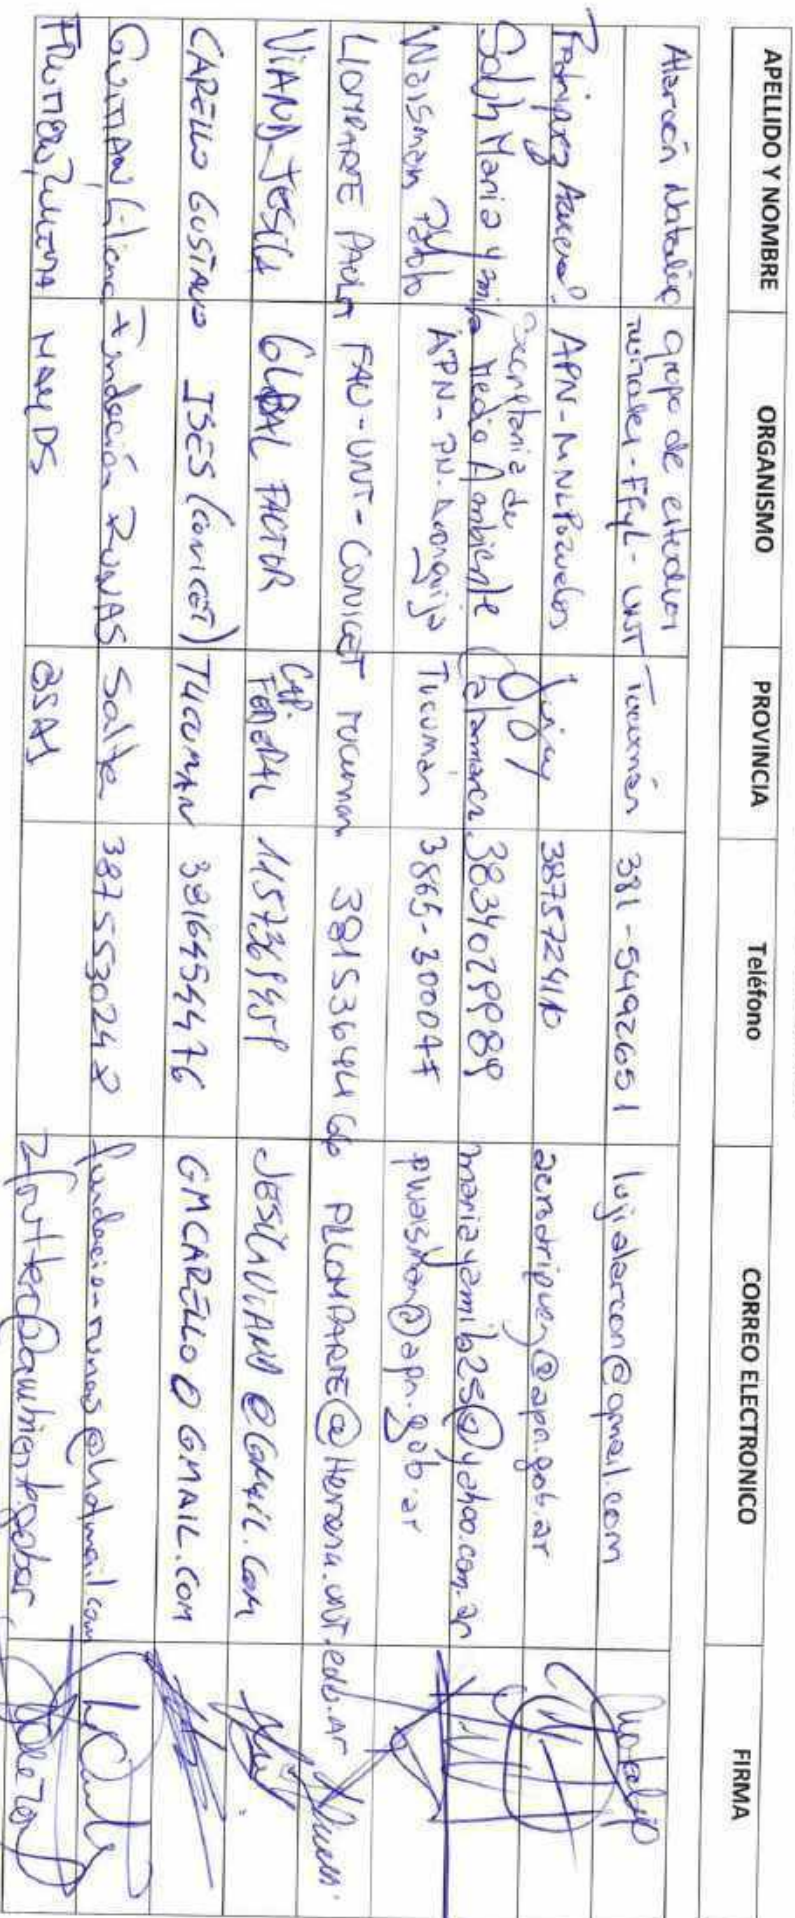 APELLIDO Y NOMBRE ORGANISMO PROVINCIA Teléfono CORREO ELECTRONICO FIRMA
Alarcón Natalia grupo de estudios rurales - FFyL - UNT Tucumán 381-5492651 lujialarcon@gmail.com Natalia
APN - MNLPozuelos Jujuy 3875724110 @apn.gob.ar
María Yamila Secretaria de Medio Ambiente Catamarca 3834029989 mariayamila25@yahoo.com.ar
Waisman Pablo APN - PN. Aconquija Tucumán 3865-300047 pwaisman@apn.gob.ar
LLOMPARTE PAULA FAU-UNT-CONICET Tucuman 3815364466 PLLOMPARTE@Herrera.unt.edu.ar
VIANA JESICA GLOBAL FACTOR CAP. FEDERAL 1157369459 JESICAVIANA@GMAIL.COM
CARELLO GUSTAVO ISES (CONICET) TUCUMAN 3816454476 GMCARELLO@GMAIL.COM
Liliana Fundación RUNAS Salta 3875530242 fundacionrunas@hotmail.com
MAyDS BSAS